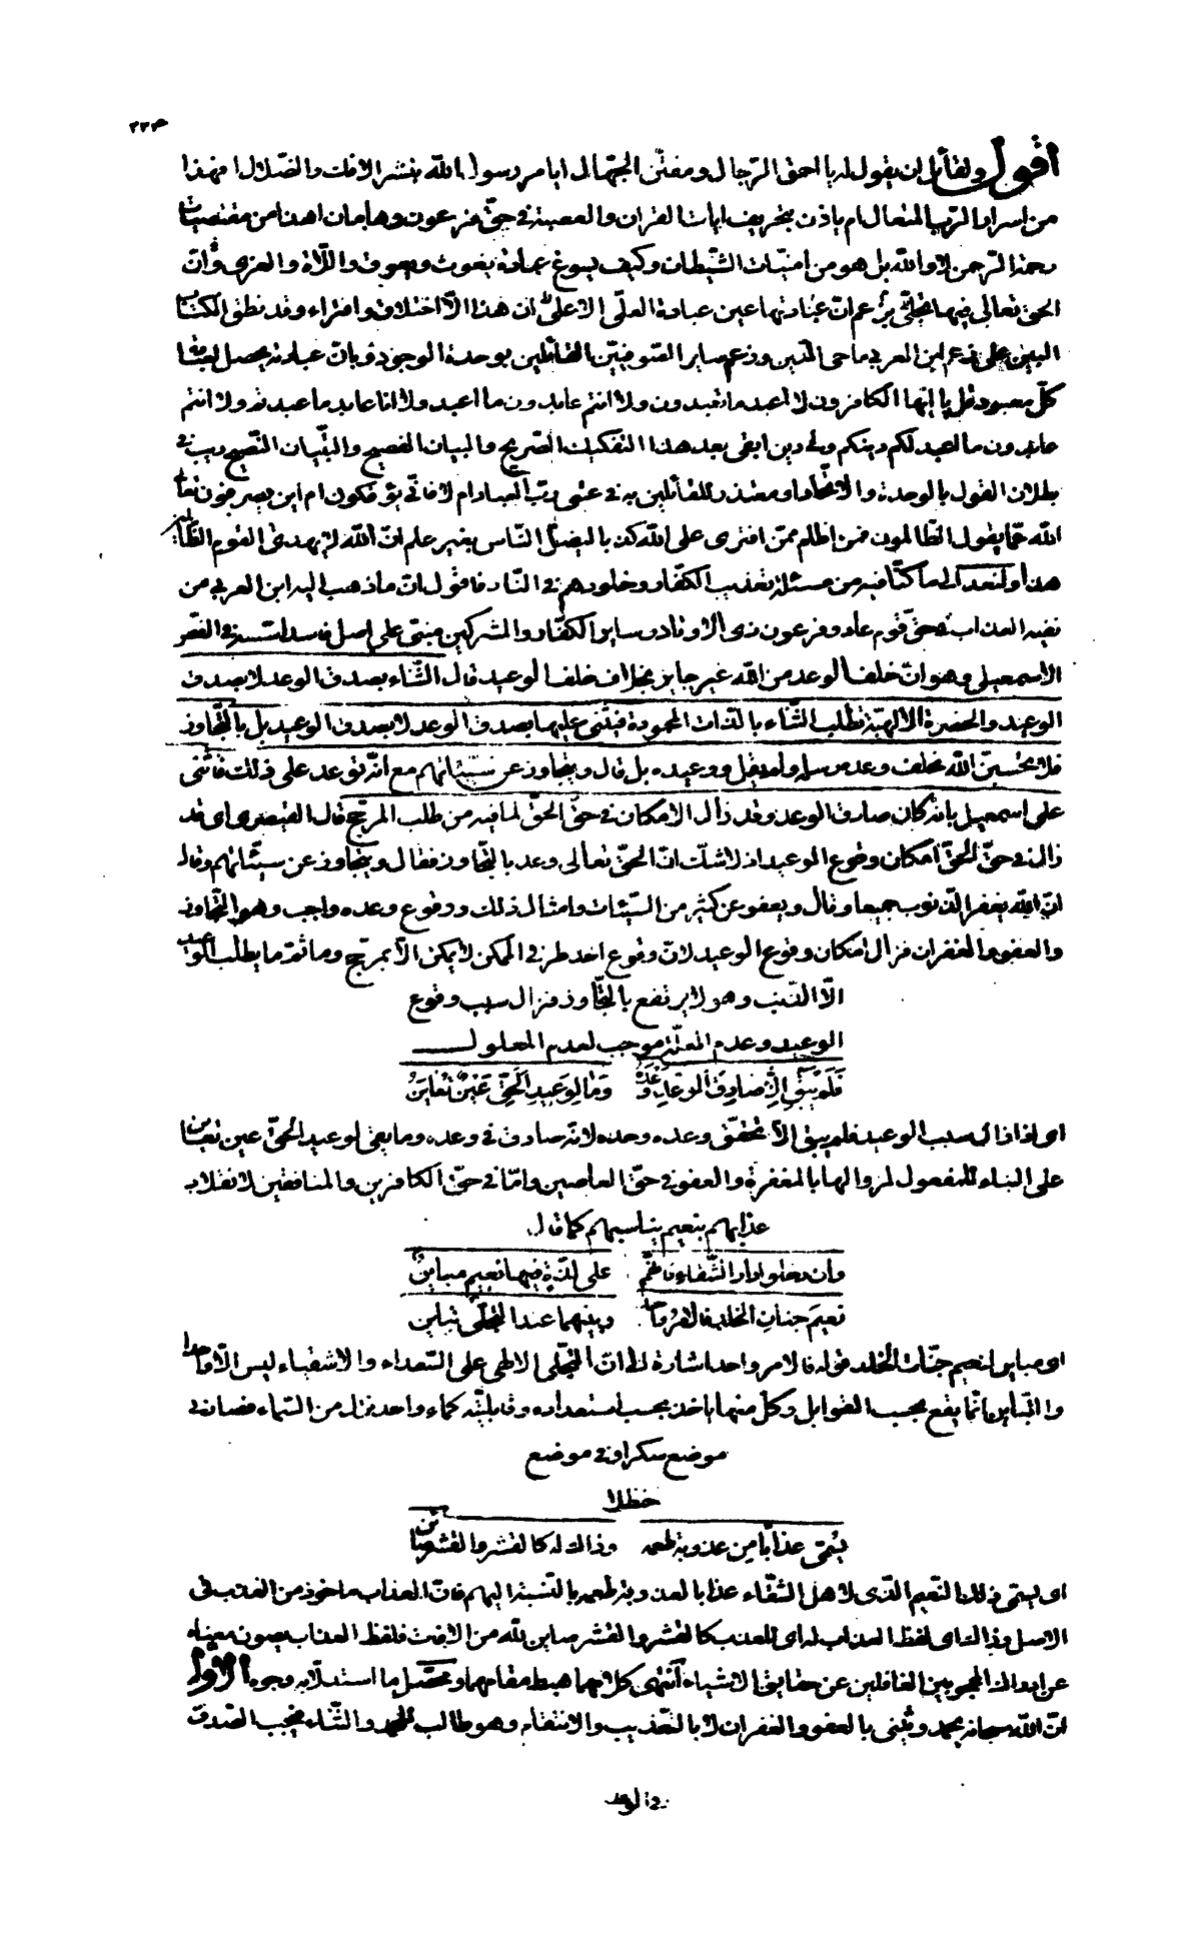 ٢٣٣
اقول ولقائل ان يقول له يا احمق الرجال ومفتن الجهال ايامر رسول الله بنشر الافك والضلال ام هذا
من اسرار الرب المتعال ام ياذن بتحريف ايات القران والعصبية فى حق فرعون وهامان اهذا من مقتضيات
رحمة الرحمن لا والله بل هو من امنيات الشيطان وكيف يسوغ عبادة يغوث ويعوق واللاة والعزى وان
الحق تعالى فيها تجلى بزعم ان عبادتها عين عبادة العلى الاعلى ان هذا الا اختلاق وافتراء وقد نطق الكتاب
المبين على زعم ابن العربى ماحى الدين وزعم ساير الصوفيين القائلين بوحدة الوجود وبان عبادته يحصل بعبادة
كل معبود قل يا ايها الكافرون لا اعبد ما تعبدون ولا انتم عابدون ما اعبد ولا انا عابد ما عبدتم ولا انتم
عابدون ما اعبد لكم دينكم ولى دين ابقى بعد هذا التفكيك الصريح والبيان الفصيح والتبيان النصيح ريب فى
بطلان القول بالوحدة والاتحاد او معتذر للقائلين به فى عتبى رب العباد ام لا فانى يؤفكون ام اين يصرفون تعالى
الله عما يقول الظالمون فمن اظلم ممن افترى على الله كذبا ليضل الناس بغير علم ان الله لا يهدى القوم الظالمين
هذا ولنعد الى ما كنا فيه من مسئلة تعذيب الكفار وخلودهم فى النار فاقول ان ما ذهب اليه ابن العربى من
نفيه العذاب فى حق قوم عاد وفرعون ذى الاوتاد وساير الكفار والمشركين مبنى على اصل فاسد اسسه فى الفص
الاسمعيلى وهو ان خلف الوعد من الله غير جايز بخلاف خلف الوعيد قال الثناء بصدق الوعد لا بصدق
الوعيد والحضرة الالهية تطلب الثناء بالذات المحمودة فيثنى عليها بصدق الوعد لا بصدق الوعيد بل بالتجاوز
فلا تحسبن الله مخلف وعده رسله ولم يقل ووعيده بل قال ويتجاوز عن سيئاتهم مع انه توعد على ذلك فاثنى
على اسمعيل بانه كان صادق الوعد وقد زال الامكان فى حق الحق لما فيه من طلب المرجح قال القيصرى اى قد
زال فى حق الحق امكان وقوع الوعيد اذ لا شك ان الحق تعالى وعد بالتجاوز فقال ويتجاوز عن سيئاتهم وقال
ان الله يغفر الذنوب جميعا وقال ويعفو عن كثير من السيئات وامثال ذلك ووقوع وعده واجب وهو التجاوز
والعفو والغفران فزال امكان وقوع الوعيد لان وقوع احد طرفى الممكن لا يمكن الا بمرجح وما ثم ما يطلب الوعيد
الا الذنب وهو لا يرتفع بالتجاوز فزال سبب وقوع
الوعيد وعدم العلة موجب لعدم المعلول
فلم يبق الا صادق الوعد وحده وما لوعيد الحق عين تعاين
اى اذا زال سبب الوعيد فلم يبق الا تحقق وعده وحده لانه صادق فى وعده وما بقى لوعيد الحق عين تعاين
على البناء للمفعول لزوالها بالمغفرة والعفو فى حق العاصين واما فى حق الكافرين والمنافقين لانقلاب
عذابهم بنعيم يناسبهم كما قال
وان دخلوا دار الشقاء فانهم على لذة فيها نعيم مباين
نعيم جنان الخلد فالامر واحد وبينهما عند التجلى تباين
اى مباين لنعيم جنات الخلد قوله فالامر واحد اشارة الى ان التجلى الالهى على السعداء والاشقياء ليس الا واحدا
والتباين انما يقع بحسب القوابل وكل منهما ياخذ بحسب استعداده وقابليته كماء واحد نزل من السماء فصار فى
موضع سكرا وفى موضع
حنظلا
يسمى عذابا من عذوبة طعمه وذاك له كالقشر والقشر صاين
اى يسمى ذلك النعيم الذى لاهل الشقاء عذابا لعذوبة طعمه بالنسبة اليهم فان العذاب ماخوذ من العذب فى
الاصل وذلك اى لفظ العذاب له اى للعذب كالقشر والقشر صاين للبه من الافت فلفظ العذاب يصون معناه
عن ادراك المحجوبين الغافلين عن حقايق الاشياء انتهى كلامهما هبط مقامهما ومحصل ما استدلا به وجوه الاول
ان الله سبحانه يحمد ويثنى بالعفو والغفران لا بالتعذيب والانتقام وهو طالب للحمد والثناء فيجب الصدق
فى الوعد